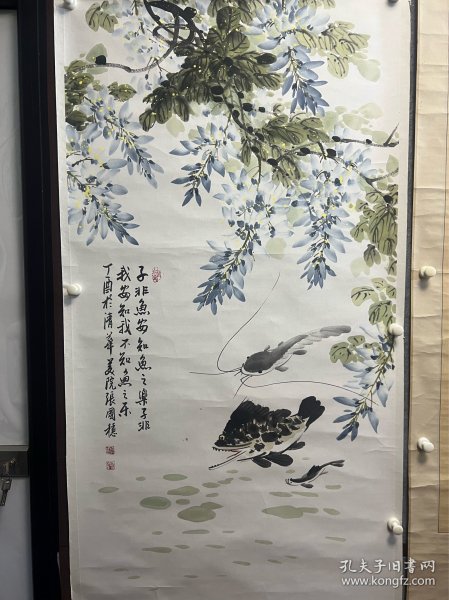 子非魚安知魚之樂子非
我安知我不知魚之乐
丁酉於清華美院張國穩
孔夫子旧书网
www.kongfz.com